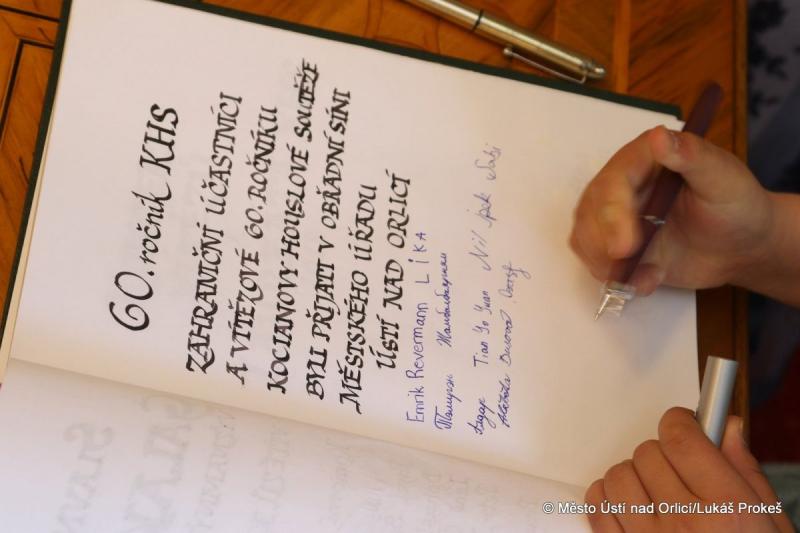 60. ročník KHS
ZAHRANIČNÍ ÚČASTNÍCI
A VÍTĚZOVÉ 60. ROČNÍKU
KOCIANOVY HOUSLOVÉ SOUTĚŽE
BYLI PŘIJATI V OBŘADNÍ SÍNI
MĚSTSKÉHO ÚŘADU
ÚSTÍ NAD ORLICÍ
Emrik Revermann LİKA
Tian Yo Yuan Nil ipek
© Město Ústí nad Orlicí/Lukáš Prokeš